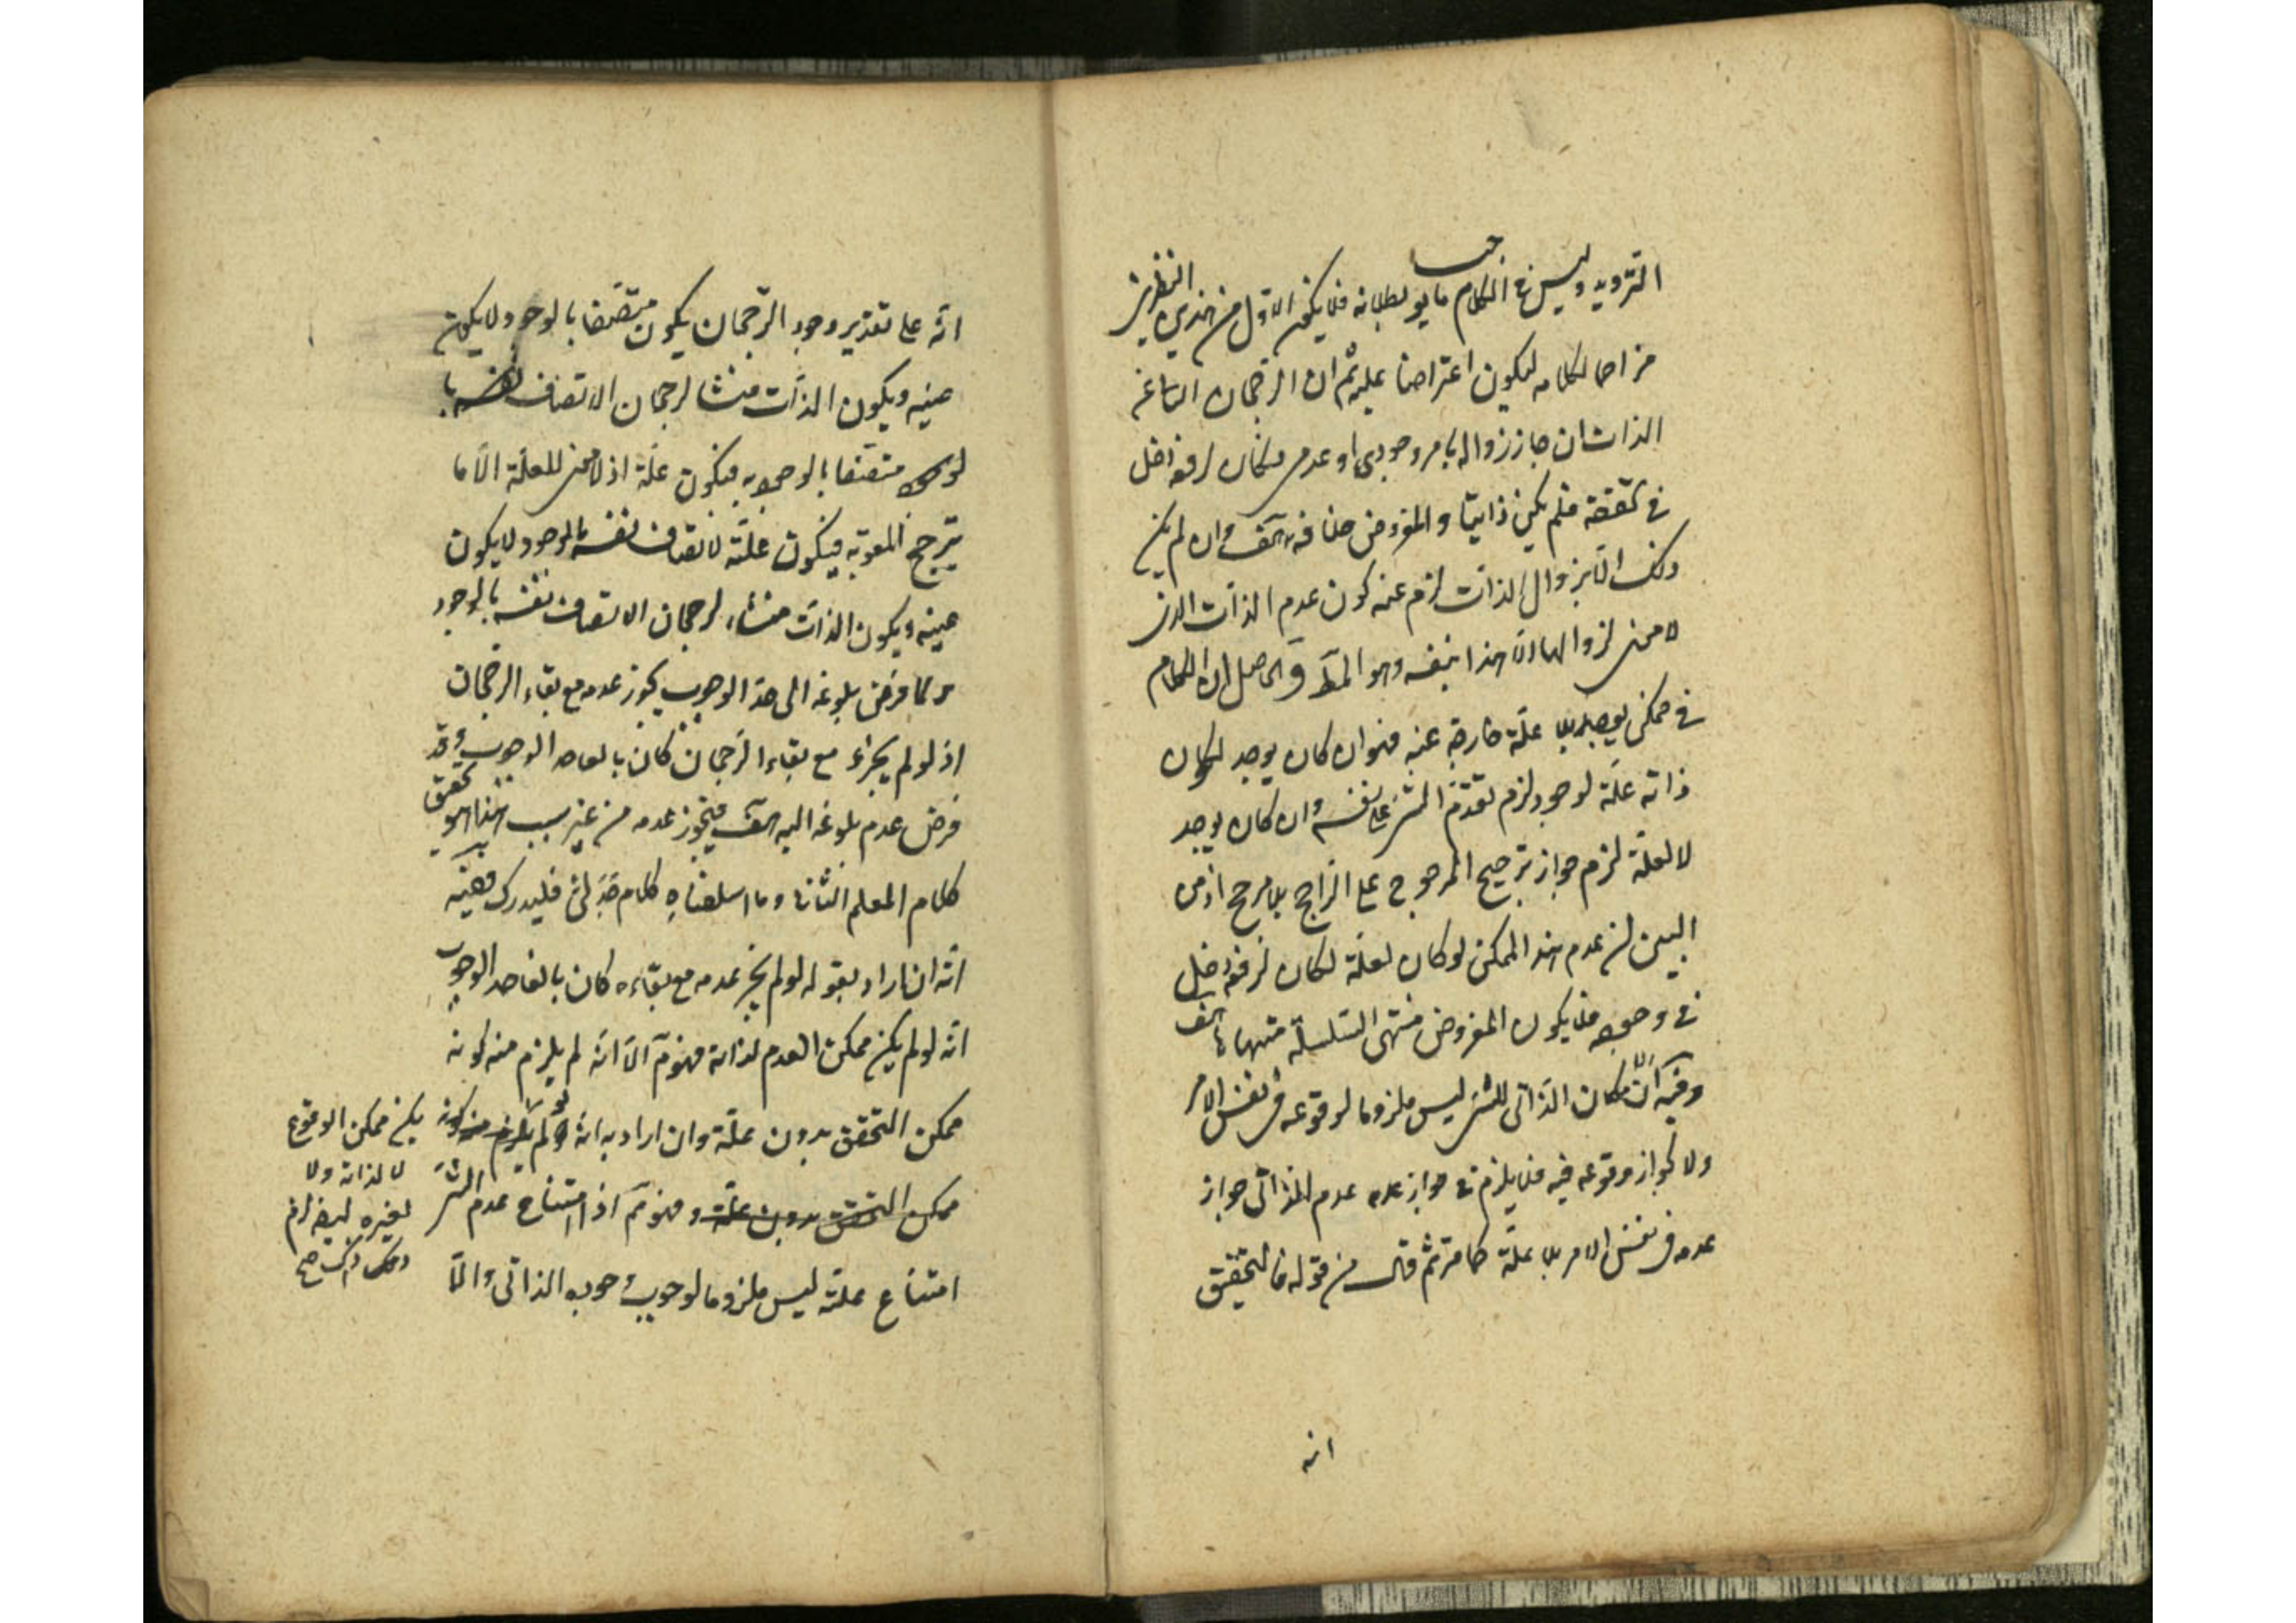 الترديد وليس في الكلام ما يوجب بطلانه فلا يكون الاول من هذين النظرين
مزاحما لكلامه ليكون اعتراضا عليه ثم ان الرجحان الناشئ عن
الذات ان جاز زواله بامر وجودي او عدمي فكان لرفعه دخل
في تحققه فلم يكن ذاتيا والمفروض خلافه هف وان لم يكن
ذلك الا بزوال الذات لزم عنه كون عدم الذات الذي
لا معنى لزوالها الا هذا بنفسه وهو المط والحاصل ان الكلام
في ممكن يوجد بلا علة خارجة عنه فهو ان كان يوجد لكان
ذاته علة لوجوده لزم تقدم الشئ على نفسه وان كان يوجد
لا لعلة لزم جواز ترجيح المرجوح على الراجح بلا مرجح اذ من
البين ان عدم هذا الممكن لو كان لعلة لكان لرفعه دخل
في وجوده فلا يكون المفروض منتهى السلسلة منتهاها هف
وفيه ان الامكان الذاتي للشئ ليس ملزوما لوقوعه في نفس الامر
ولا لجواز وقوعه فيه فلا يلزم في جواز عدمه عدم الذاتي جواز
عدمه في نفس الامر بلا علة كما مر ثم قال من قوله فالتحقيق
انه
انه على تقدير وجود الرجحان يكون متصفا بالوجود لا يكون
عينه ويكون الذات منشا لرجحان الاتصاف نفسه با
لوجود متصفا بالوجود به فيكون علة اذ لا معنى للعلة الا ما
يترجح المعلول به فيكون علة لاتصاف نفسه بالوجود لا يكون
عينه ويكون الذات منشاء لرجحان الاتصاف نفسه بالوجود
ولما فرض بلوغه الى حد الوجوب يجوز عدمه مع بقاء الرجحان
اذ لو لم يجز مع بقاء الرجحان كان بالغا حد الوجوب وقد
فرض عدم بلوغه اليه هف فيجوز عدمه من غير سبب هذا هو تحقيق
كلام المعلم الثاني وما اسلفناه كلام جدلي فليدرك وفيه
انه ان اراد بقوله لو لم يجز عدمه مع بقاءه كان بالغا حد الوجوب
انه لو لم يكن ممكن العدم لذاته فهو مم الا انه لم يلزم منه كونه
ممكن التحقق بدون علة وان اراد به انه لو لم يلزم منه كونه
يكن ممكن الوقوع
لا لذاته ولا
لغيره
ممكن التحقق بدون علة وفهو مم اذ امتناع عدم الشئ
امتناع علته ليس ملزوما لوجوب وجوبه الذاتي والا